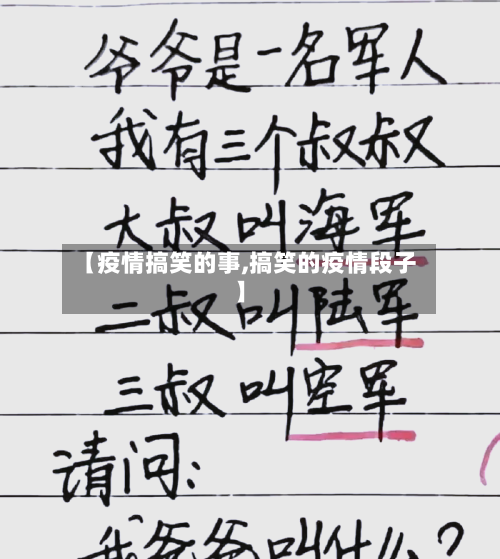 爷爷是一名军人
我有三个叔叔
大叔叫海军
【疫情搞笑的事,搞笑的疫情段子
】
二叔叫陆军
三叔叫空军
请问:
我爸爸叫什么?